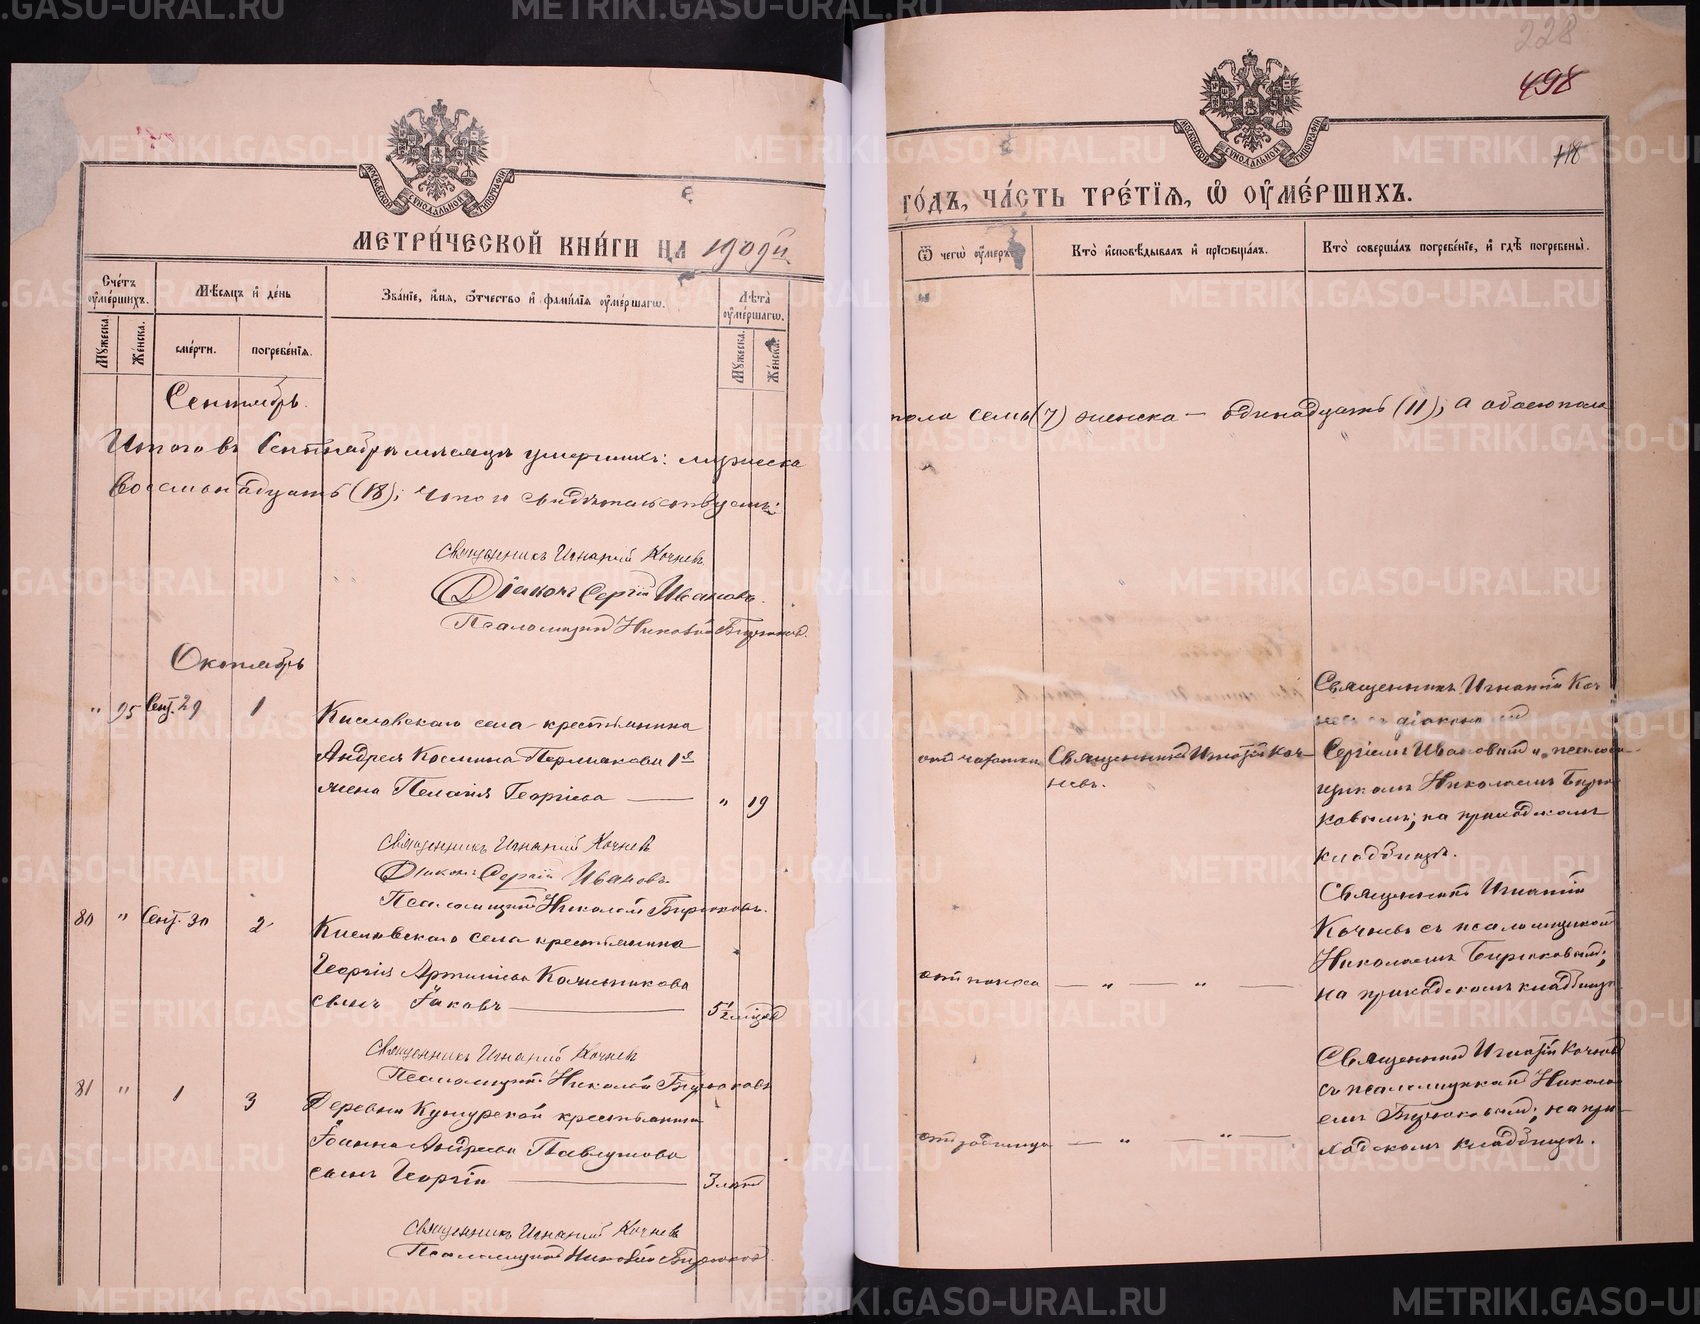 METRIKI.GASO-URAL.RU
228
498
118
МОСКОВСКОЙ СѴНОДАЛЬНОЙ ТИПОГРАФІИ
МЕТРИ́ЧЕСКОЙ КНИ́ГИ НА 1909й
Сче́тъ оу҆ме́ршихъ.
Мѣ́сяцъ и҆ де́нь
Зва́ніе, и҆́мя, ѻ҆́тчество и҆ фами́лія оу҆ме́ршагѡ.
Лѣ́та оу҆ме́ршагѡ.
Мꙋ́жеска.
Же́нска.
сме́рти.
погребе́нія.
Мꙋ́жеска.
Же́нска.
Сентябрь.
Итого въ Сентябрѣ мѣсяцѣ умершихъ: мужеска
восемьнадцать (18); что и свидѣтельствуемъ:
Священникъ Игнатій Кочневъ
Діаконъ Сергій Ивановъ.
Псаломщикъ Николай Бирюковъ.
Октябрь
" 95 Сент. 29 1
Кисловскаго села крестьянина
Андрея Космина Пермякова 1я
жена Пелагія Георгіева — " 19
Священникъ Игнатій Кочневъ
Діаконъ Сергій Ивановъ.
Псаломщикъ Николай Бирюковъ.
80 " Сент. 30 2
Кисловскаго села крестьянина
Георгія Колясникова
сынъ Іаковъ — 5½ мѣсяц
Священникъ Игнатій Кочневъ
Псаломщикъ Николай Бирюковъ
81 " 1 3
Деревни крестьянина
Іоанна Андреева Павлушова
сынъ Георгій — 3 лѣтъ
Священникъ Игнатій Кочневъ
Псаломщикъ Николай Бирюковъ
МОСКОВСКОЙ СѴНОДАЛЬНОЙ ТИПОГРАФІИ
ГО́ДЪ, ЧА́СТЬ ТРЕ́ТІЯ, Ѡ҆ ОУ҆МЕ́РШИХЪ.
Ѿ чегѡ̀ оу҆́меръ
Кто̀ и҆сповѣ́дывалъ и҆ прїѡбща́лъ.
Кто̀ соверша́лъ погребе́ніе, и҆ гдѣ̀ погребены̀.
пола семь (7) женска — одинадцать (11); а обоего пола
отъ чахотки
Священникъ Игнатій Коч-
невъ.
Священникъ Игнатій Коч
невъ съ діакономъ
Сергіемъ Ивановымъ и псалом-
щикомъ Николаемъ Бирю
ковымъ; на приходскомъ
кладбищѣ.
отъ поноса
— " — " —
Священникъ Игнатій
Кочневъ съ псаломщикомъ
Николаемъ Бирюковымъ;
на приходскомъ кладбищѣ
отъ родимца
— " — " —
Священникъ Игнатій Кочневъ
съ псаломщикомъ Никола
емъ Бирюковымъ; на при-
ходскомъ кладбищѣ.